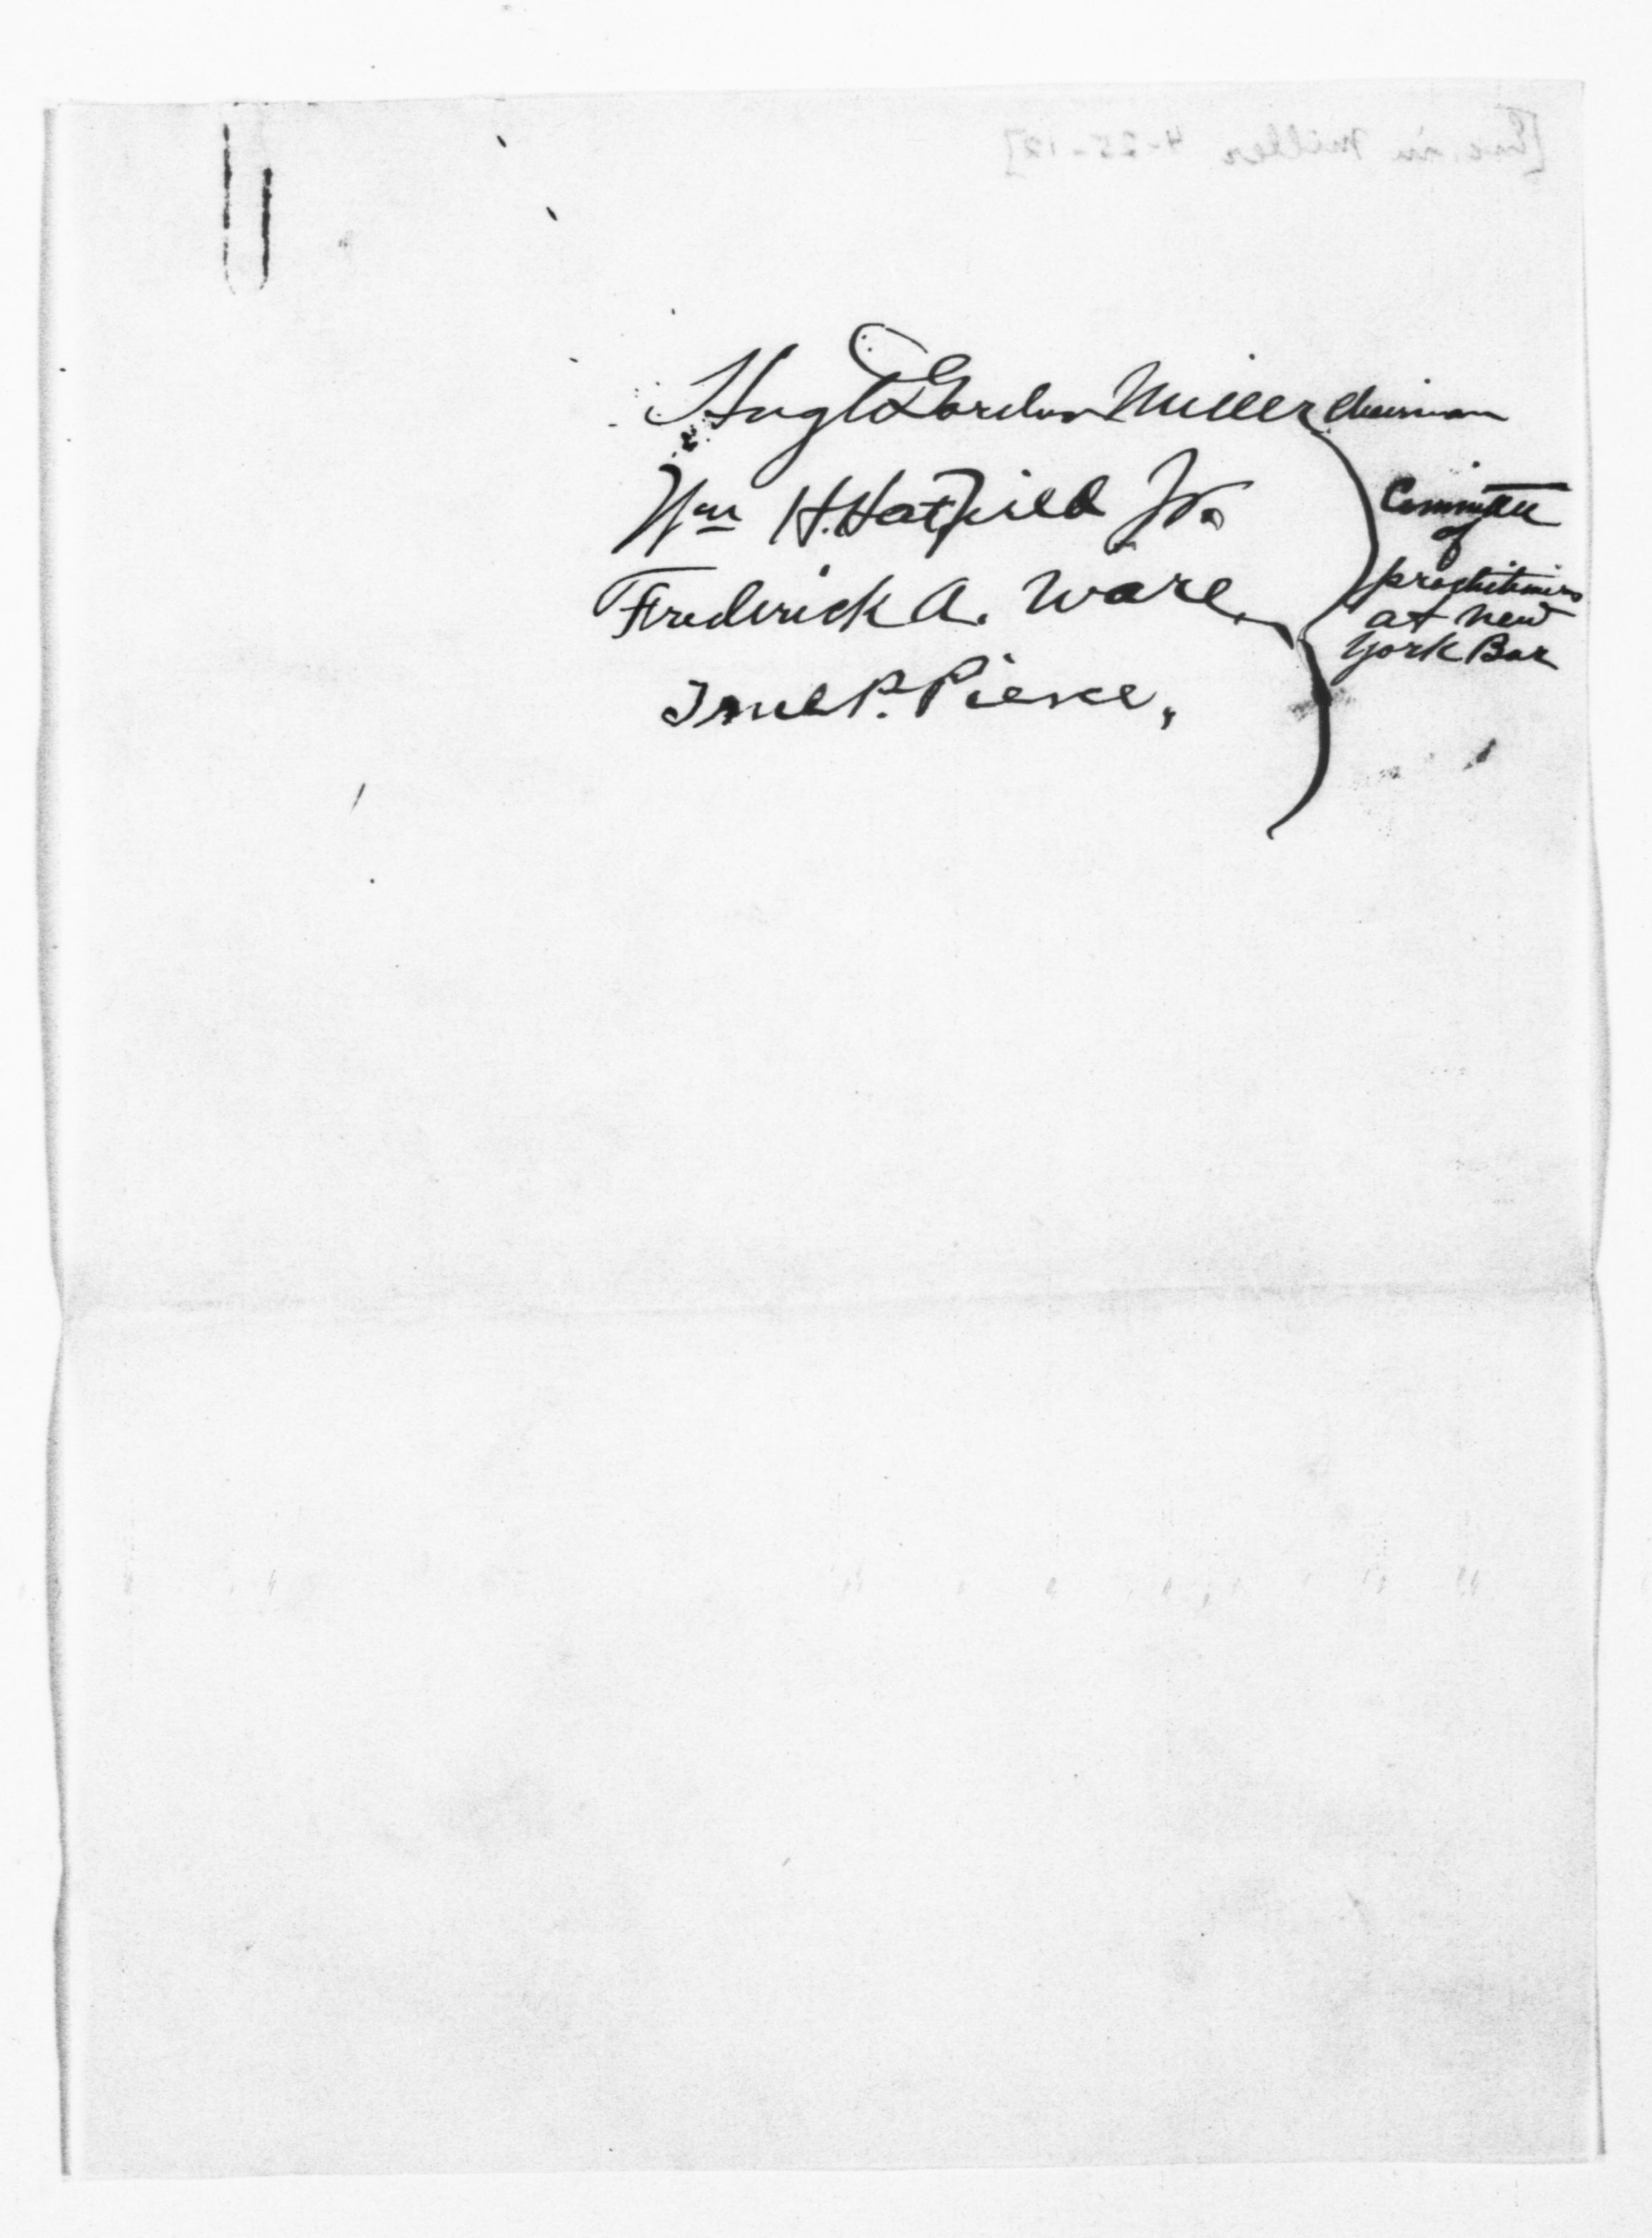 [Enc. in Miller 4-25-12]
Hugh Gordon Miller Chairman
Wm H. Hatfield Jr.
Frederick A. Ware
P. Pierce,
Committee
of
at New
York Bar